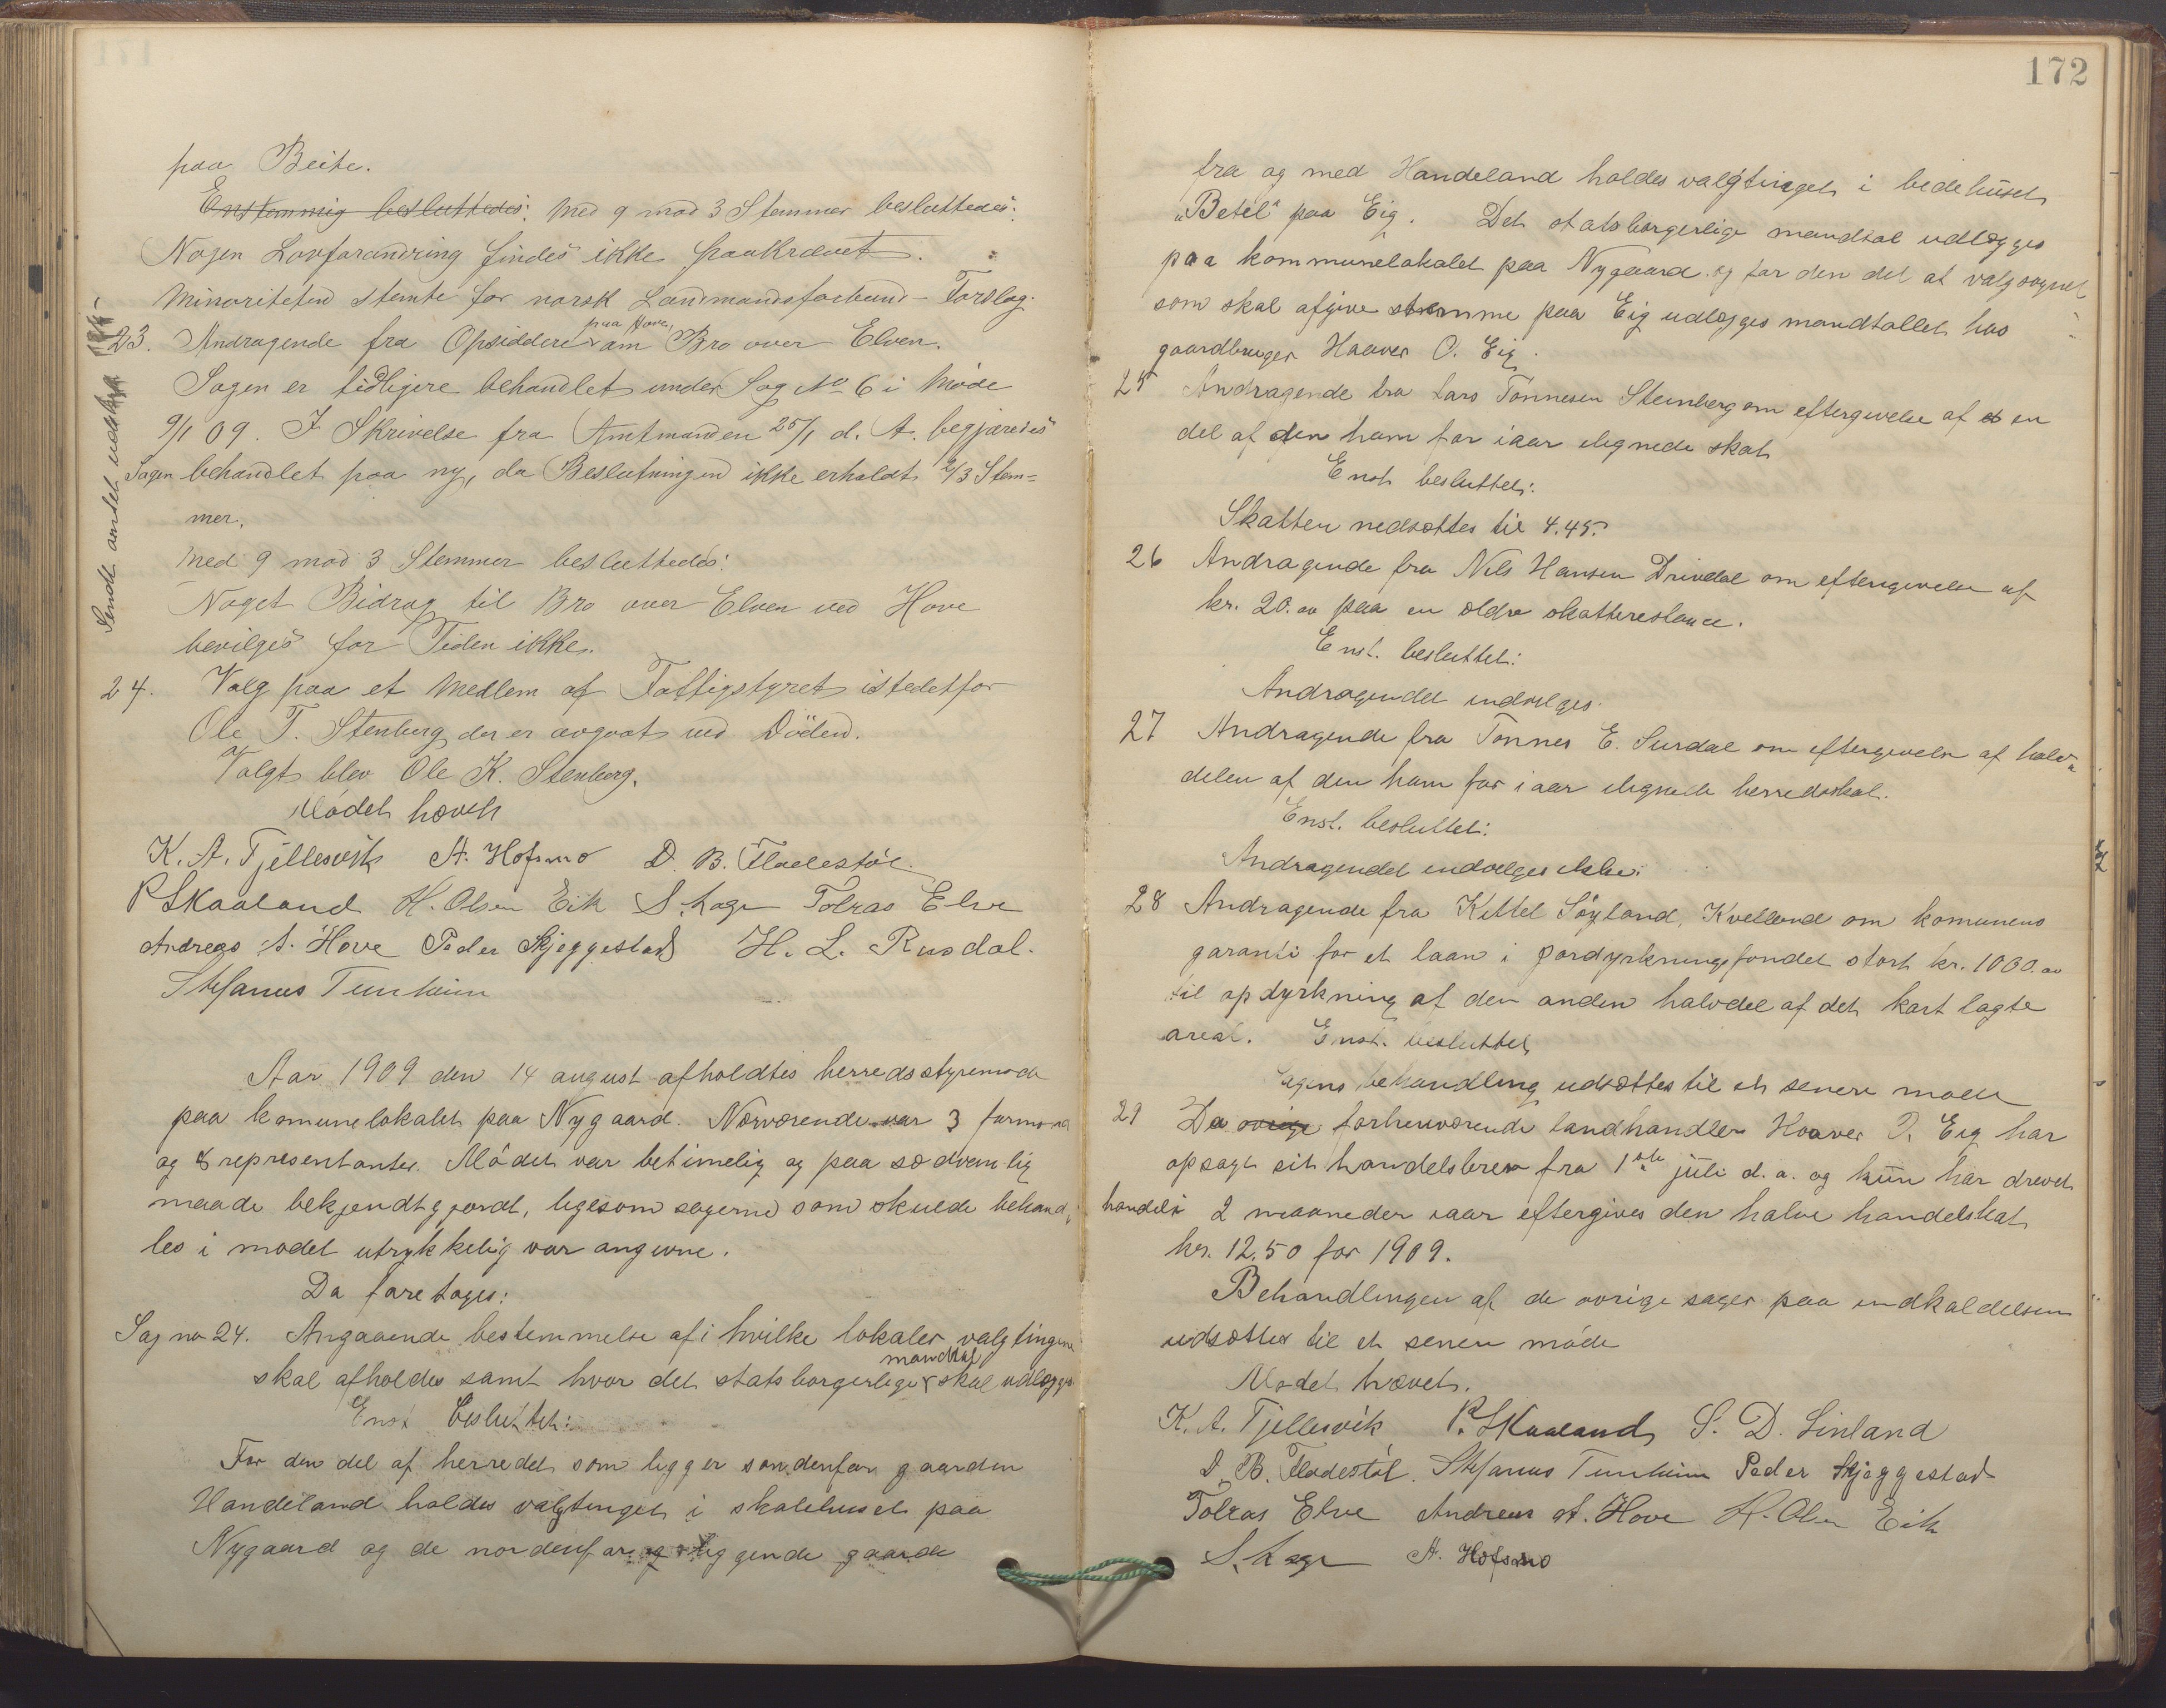 paa Beite.
Enstemmig besluttedes: Med 9 mod 3 Stemmer besluttedes:
Nogen Lovforandring findes ikke paakrævet.
Minoriteten stemte for norsk Landmandsforbund-Forslag.
23. Andragende fra Opsiddere paa Hove om Bro over Elven.
Sagen er tidligere behandlet under Sag No 6 i Møde
9/1 09. I Skrivelse fra Amtmanden 25/1 d. A. begjæredes
Sagen behandlet paa ny, da Beslutningen ikke erholdt 2/3 Stem=
mer.
Sendt amtet udskr
Med 9 mod 3 Stemmer besluttedes:
Noget Bidrag til Bro over Elven ved Hove
bevilges for Tiden ikke.
24. Valg paa et Medlem af Fattigstyret istedetfor
Ole T. Stenberg, der er avgaat ved Döden.
Valgt blev Ole K. Stenberg.
Mödet hævet
K. A. Tjellesvik A. Hofsmo D. B. Fladestøl
P Skaaland H. Olsen Eik S. Lage Tolras Elve
Andreas A. Hove Peder Skjeggestad H. L. Rusdal.
Stefanus Tunheim
Aar 1909 den 14 august afholdtes herredsstyremøde
paa komunelokalet paa Nygaard. Nærværende var 3 formænd
og 8 representanter. Mödet var betimelig og paa sædvanlig
maade bekjendtgjordt, ligesom sagerne som skulde behand„
les i mødet utrykkelig var angivne.
Da foretoges:
Sag no 24. Angaaende bestemmelse af i hvilke lokaler valgtingene
skal afholdes samt hvor det statsborgerlige mandtal skal udlægges
Enst besluttet:
For den del af herredet som ligger søndenfor gaarden
Handeland holdes valgtinget i skolehuset paa
Nygaard og de nordenfor og liggende gaarde
172
fra og med Handeland holdes valgtinget i bedehuset
„Betel“ paa Eig. Det statsborgerlige mandtal udlægges
paa kommunelokalet paa Nygaard og for den del af valgsognet
som skal afgive stemme paa Eig udlægges mandtallet hos
gaardbruger Haaver O. Eig.
25 Andragende fra Lars Tönnesen Stenberg om eftergivelse af en
del af den ham for iaar ilignede skat
Enst besluttet:
Skatten nedsættes til 4.45.
26 Andragende fra Nils Hansen Drivdal om eftergivelse af
kr. 20.00 paa en ældre skatterestance.
Enst. besluttet:
Andragendet indvilges.
27 Andragende fra Tønnes E. Surdal om eftergivelse af halv„
delen af den ham for iaar ilignede herredsskat.
Enst. besluttet:
Andragendet indvilges ikke.
28 Andragende fra Kittel Söyland, Kvelland om komunens
garanti for et laan i jordyrkningsfondet stort kr. 1000.00
til opdyrkning af den anden halvdel af det kart lagte
areal. Enst. besluttet
Sagens behandling udsættes til et senere møde
29 Da ovrige forhenværende landhandler Haaver O. Eig har
opsagt sit handelsbrev fra 1ste juli d. a. og kun har drevet
handel i 2 maaneder iaar eftergives den halve handelskat
kr. 12.50 for 1909.
Behandlingen af de øvrige sager paa indkaldelsen
udsættes til et senere möde
Mødet hævet.
K. A. Tjellesvik P. Skaaland S. D. Linland
D. B. Fladestöl. Stefanus Tunheim Peder Skjeggestad
Tolras Elve Andreas A. Hove H. Olsen Eik
S. Lage A. Hofsmo